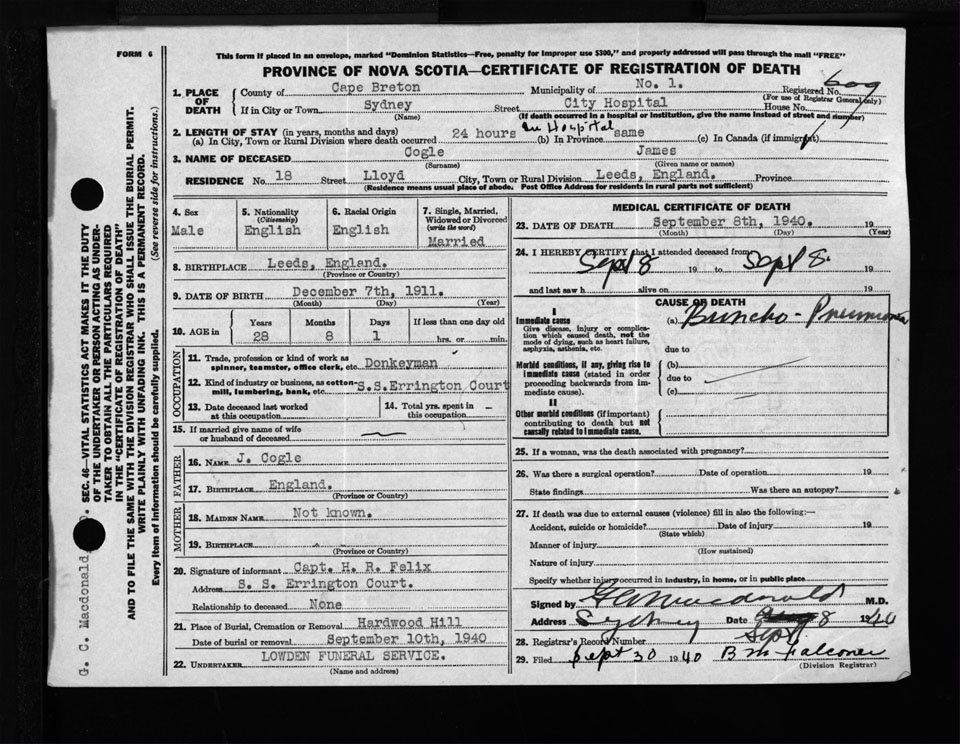 FORM 6
This form if placed in an envelope, marked "Dominion Statistics—Free, penalty for improper use $300," and properly addressed will pass through the mail "FREE"
PROVINCE OF NOVA SCOTIA—CERTIFICATE OF REGISTRATION OF DEATH
1. PLACE OF DEATH
County of Cape Breton Municipality of No. 1. Registered No. 609
(For use of Registrar General only)
If in City or Town Sydney Street City Hospital House No.
(Name) (If death occurred in a hospital or institution, give the name instead of street and number)
2. LENGTH OF STAY (in years, months and days)
(a) In City, Town or Rural Division where death occurred 24 hours in Hospital (b) In Province same (c) In Canada (if immigrant)
3. NAME OF DECEASED Cogle James
(Surname) (Given name or names)
RESIDENCE No. 18 Street Lloyd City, Town or Rural Division Leeds, England. Province
(Residence means usual place of abode. Post Office Address for residents in rural parts not sufficient)
4. Sex Male
5. Nationality (Citizenship) English
6. Racial Origin English
7. Single, Married, Widowed or Divorced (write the word) Married
8. BIRTHPLACE Leeds, England.
(Province or Country)
9. DATE OF BIRTH December 7th, 1911.
(Month) (Day) (Year)
10. AGE in Years 28 Months 8 Days 1 If less than one day old hrs. or min.
OCCUPATION
11. Trade, profession or kind of work as spinner, teamster, office clerk, etc. Donkeyman
12. Kind of industry or business, as cotton-mill, lumbering, bank, etc. S.S.Errington Court
13. Date deceased last worked at this occupation
14. Total yrs. spent in this occupation. –
15. If married give name of wife or husband of deceased
FATHER
16. NAME J. Cogle
17. BIRTHPLACE England.
(Province or Country)
MOTHER
18. MAIDEN NAME Not known.
19. BIRTHPLACE
(Province or Country)
20. Signature of informant Capt. H. R. Felix
Address S. S. Errington Court.
Relationship to deceased None
21. Place of Burial, Cremation or Removal Hardwood Hill
Date of burial or removal September 10th, 1940
22. UNDERTAKER LOWDEN FUNERAL SERVICE.
(Name and address)
MEDICAL CERTIFICATE OF DEATH
23. DATE OF DEATH September 8th, 1940. 19
(Month) (Day) (Year)
24. I HEREBY CERTIFY that I attended deceased from
Sept 8 19 to Sept 8. 19
and last saw h alive on 19
CAUSE OF DEATH
I
Immediate cause (a) Buncho-Pneumonia
Give disease, injury or complication which caused death, not the mode of dying, such as heart failure, asphyxia, asthenia, etc.
due to
Morbid conditions, if any, giving rise to immediate cause (stated in order proceeding backwards from immediate cause).
(b)
due to
(c)
II
Other morbid conditions (if important) contributing to death but not causally related to immediate cause.
25. If a woman, was the death associated with pregnancy?
26. Was there a surgical operation? Date of operation 19
State findings Was there an autopsy?
27. If death was due to external causes (violence) fill in also the following:—
Accident, suicide or homicide? Date of injury 19
(State which)
Manner of injury
(How sustained)
Nature of injury
Specify whether injury occurred in industry, in home, or in public place
Signed by G C Macdonald M.D.
Address Sydney Date Sept 8 1940
28. Registrar's Record Number
29. Filed Sept 30 1940 B M Falconer
(Division Registrar)
SEC. 46—VITAL STATISTICS ACT MAKES IT THE DUTY
OF THE UNDERTAKER OR PERSON ACTING AS UNDER-
TAKER TO OBTAIN ALL THE PARTICULARS REQUIRED
IN THE "CERTIFICATE OF REGISTRATION OF DEATH"
AND TO FILE THE SAME WITH THE DIVISION REGISTRAR WHO SHALL ISSUE THE BURIAL PERMIT.
WRITE PLAINLY WITH UNFADING INK. THIS IS A PERMANENT RECORD.
Every item of information should be carefully supplied. (See reverse side for instructions.)
G. C. Macdonald